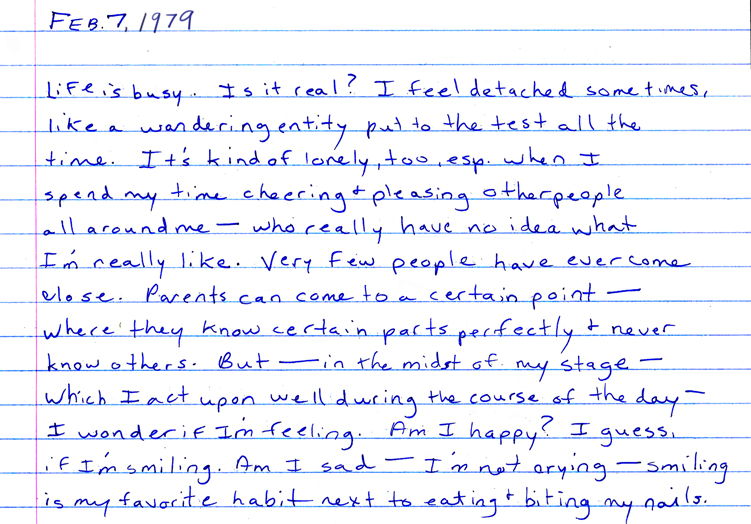 FEB. 7, 1979
Life is busy. Is it real? I feel detached sometimes,
like a wandering entity put to the test all the
time. It's kind of lonely, too, esp. when I
spend my time cheering + pleasing other people
all around me — who really have no idea what
I'm really like. Very few people have ever come
close. Parents can come to a certain point —
where they know certain parts perfectly + never
know others. But — in the midst of my stage —
which I act upon well during the course of the day —
I wonder if I'm feeling. Am I happy? I guess,
if I'm smiling. Am I sad — I'm not crying — smiling
is my favorite habit next to eating + biting my nails.